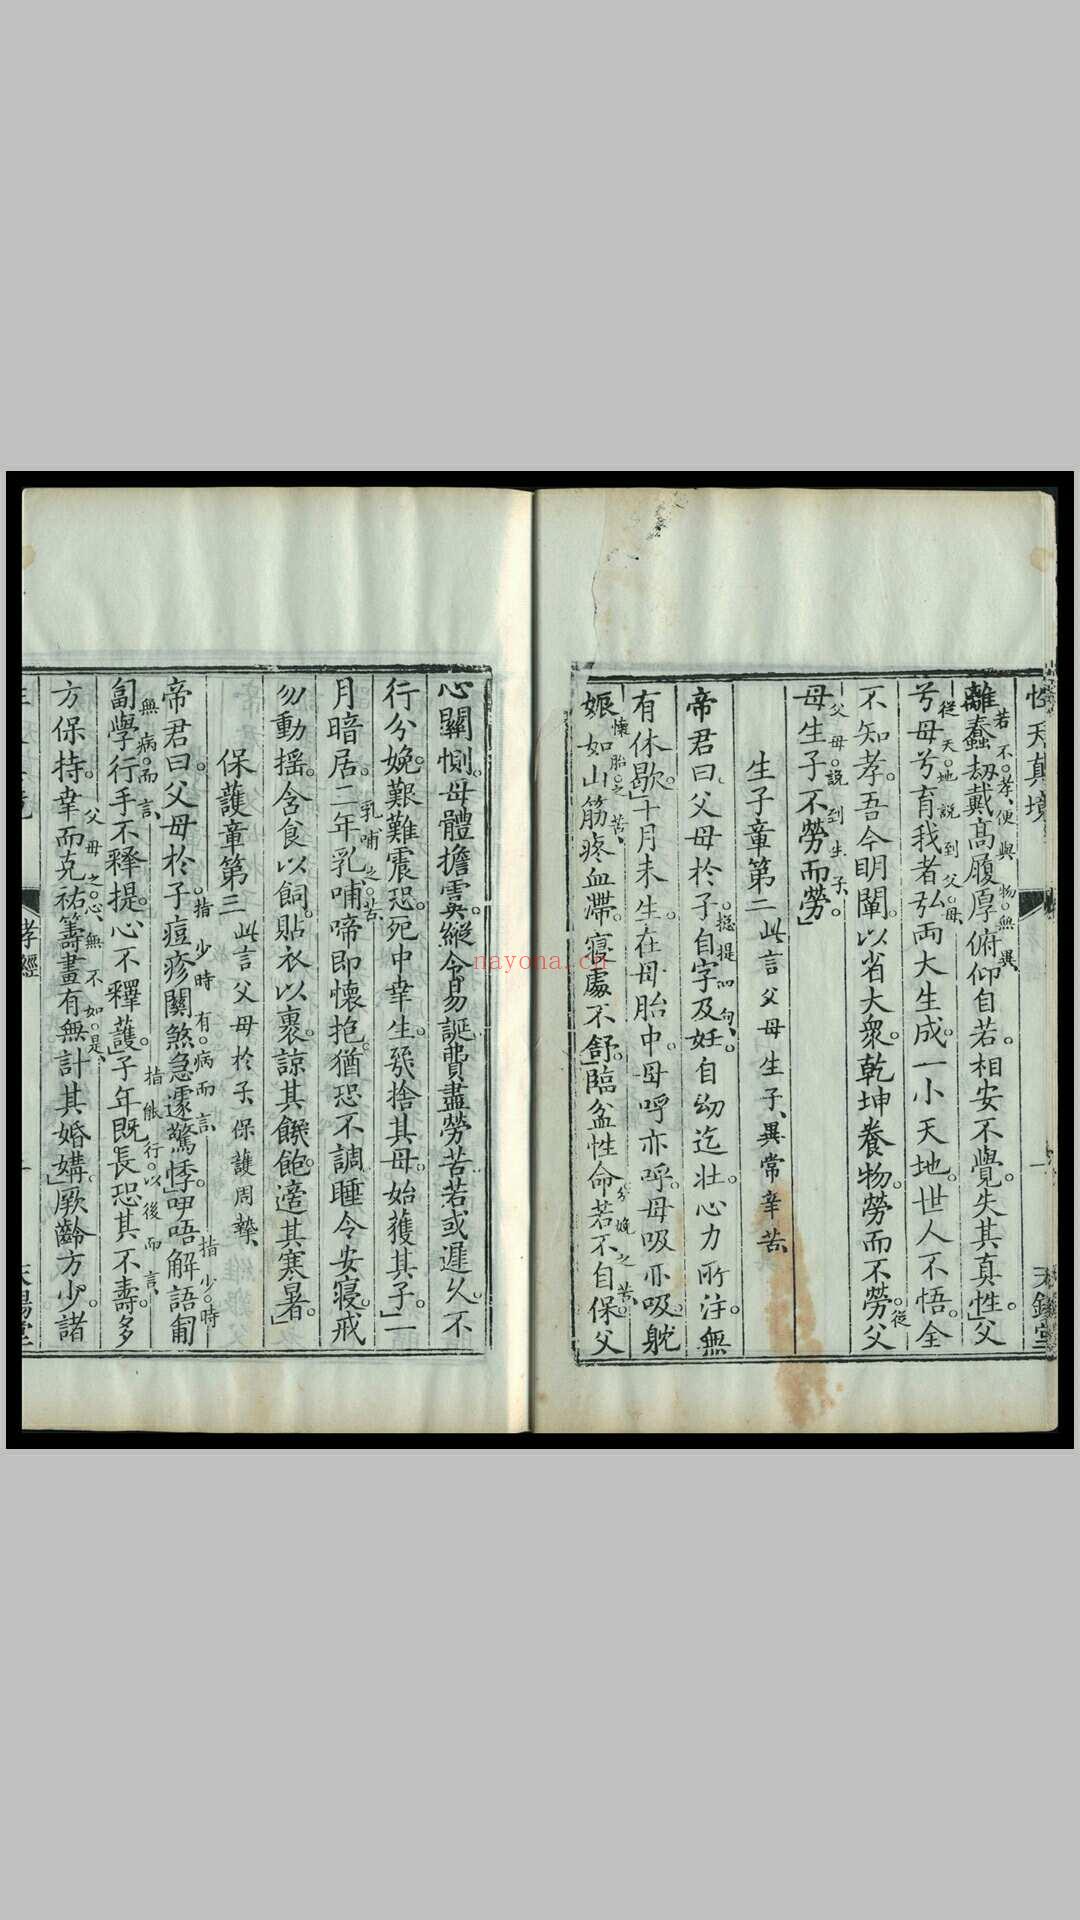 性天真境
離蠢刼戴高履厚俯仰自若相安不覺失其真性父
若不孝便與物無異
兮母兮育我者弘兩大生成一小天地世人不悟全
從天地說到父母
不知孝吾今明闡以省大衆乾坤養物勞而不勞父
從
母生子不勞而勞
父母說到生子
生子章第二 此言父母生子異常辛苦
帝君曰父母於子自字及妊自幼迄壯心力所注無
總提四句
有休歇十月未生在母胎中母呼亦呼母吸亦吸躭
娠如山筋疼血滯寢處不舒臨盆性命若不自保父
懷胎之苦 分娩之苦
心關惻母體擔虞縱令易誕費盡勞苦若或遲久不
行分娩艱難震恐死中幸生幾捨其母始獲其子二
月暗居二年乳哺啼即懷抱猶恐不調睡令安寢戒
乳哺之苦
勿動搖含食以飼貼衣以裹諒其饑飽適其寒暑
保護章第三 此言父母於子保護周摯
帝君曰父母於子痘疹關煞急遽驚悸咿唔解語匍
指少時有病而言 指少時
匐學行手不釋提心不釋護子年既長恐其不壽多
無病而言 指能行以後而言
方保持幸而克祐籌畫有無計其婚媾厥齡方少諸
父母之心無不如是
孝經
nayona.cn